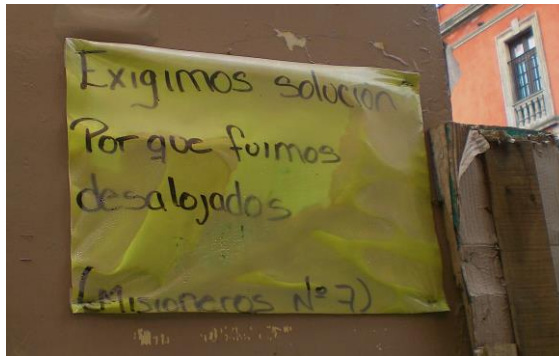 Exigimos solucion
Por que fuimos
desalojados
(Misioneros Nº 7)